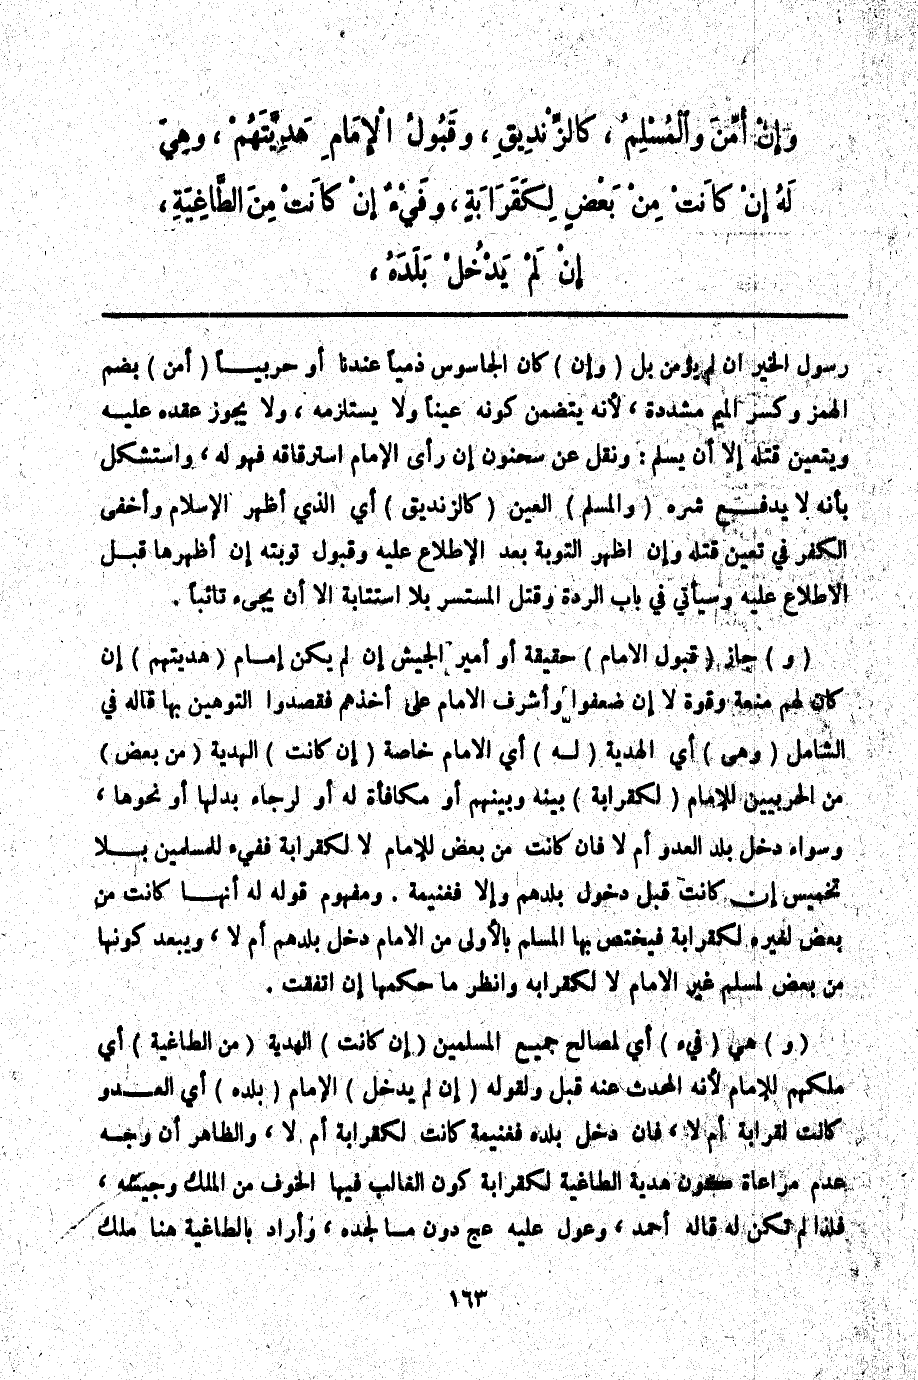 وَإِنْ أُمِّنَ وَالْمُسْلِمُ ، كَالزِّنْدِيقِ ، وَقَبُولُ الْإِمَامِ هَدِيَّتَهُمْ ، وَهِيَ
لَهُ إِنْ كَانَتْ مِنْ بَعْضٍ لِكَقَرَابَةٍ ، وَفَيْءٌ إِنْ كَانَتْ مِنَ الطَّاغِيَةِ ،
إِنْ لَمْ يَدْخُلْ بَلَدَهُ ،
رسول الخير ان لم يؤمن بل ( وإن ) كان الجاسوس ذمياً عندنا أو حربيـــاً ( أمن ) بضم
الهمز وكسر الميم مشددة ، لأنه يتضمن كونه عيناً ولا يستلزمه ، ولا يجوز عقده عليـه
ويتعين قتله إلا أن يسلم : ونقل عن سحنون إن رأى الإمام استرقاقه فهو له ، واستشكل
بأنه لا يدفـــع شره ( والمسلم ) العين ( كالزنديق ) أي الذي أظهر الإسلام وأخفى
الكفر في تعين قتله وإن اظهر التوبة بعد الإطلاع عليه وقبول توبته إن أظهرها قبـل
الاطلاع عليه وسيأتي في باب الردة وقتل المستسر بلا استتابة الا أن يجيء تائباً .
( و ) جاز ( قبول الامام ) حقيقة أو أمير الجيش إن لم يكن إمـام ( هديتهم ) إن
كان لهم منعة وقوة لا إن ضعفوا وأشرف الامام على أخذهم فقصدوا التوهين بها قاله في
الشامل ( وهى ) أي الهدية ( لـه ) أي الامام خاصة ( إن كانت ) الهدية ( من بعض )
من الحربيين للإمام ( لكقرابة ) بينه وبينهم أو مكافأة له أو لرجاء بدلها أو نحوها ،
وسواء دخل بلد العدو أم لا فان كانت من بعض للإمام لا لكقرابة ففيء للمسلمين بـــلا
تخميس إن كانت قبل دخول بلدهم وإلا فغنيمة . ومفهوم قوله له أنهـا كانت من
بعض لغيره لكقرابة فيختص بها المسلم بالأولى من الامام دخل بلدهم أم لا ، ويبعد كونها
من بعض لمسلم غير الامام لا لكقرابه وانظر ما حكمها إن اتفقت .
( و ) هي ( فيء ) أي لمصالح جميع المسلمين ( إن كانت ) الهدية ( من الطاغية ) أي
ملكهم للإمام لأنه المحدث عنه قبل ولقوله ( إن لم يدخل ) الإمام ( بلده ) أي العـــدو
كانت لقرابة أم لا ، فان دخل بلده فغنيمة كانت لكقرابة أم لا ، والظاهر أن وجـه
عدم مراعاة كون هدية الطاغية لكقرابة كون الغالب فيها الخوف من الملك وجيشه ،
فلذا لم تكن له قاله أحمد ، وعول عليه عج دون مـا لجده ، وأراد بالطاغية هنا ملك
١٦٣